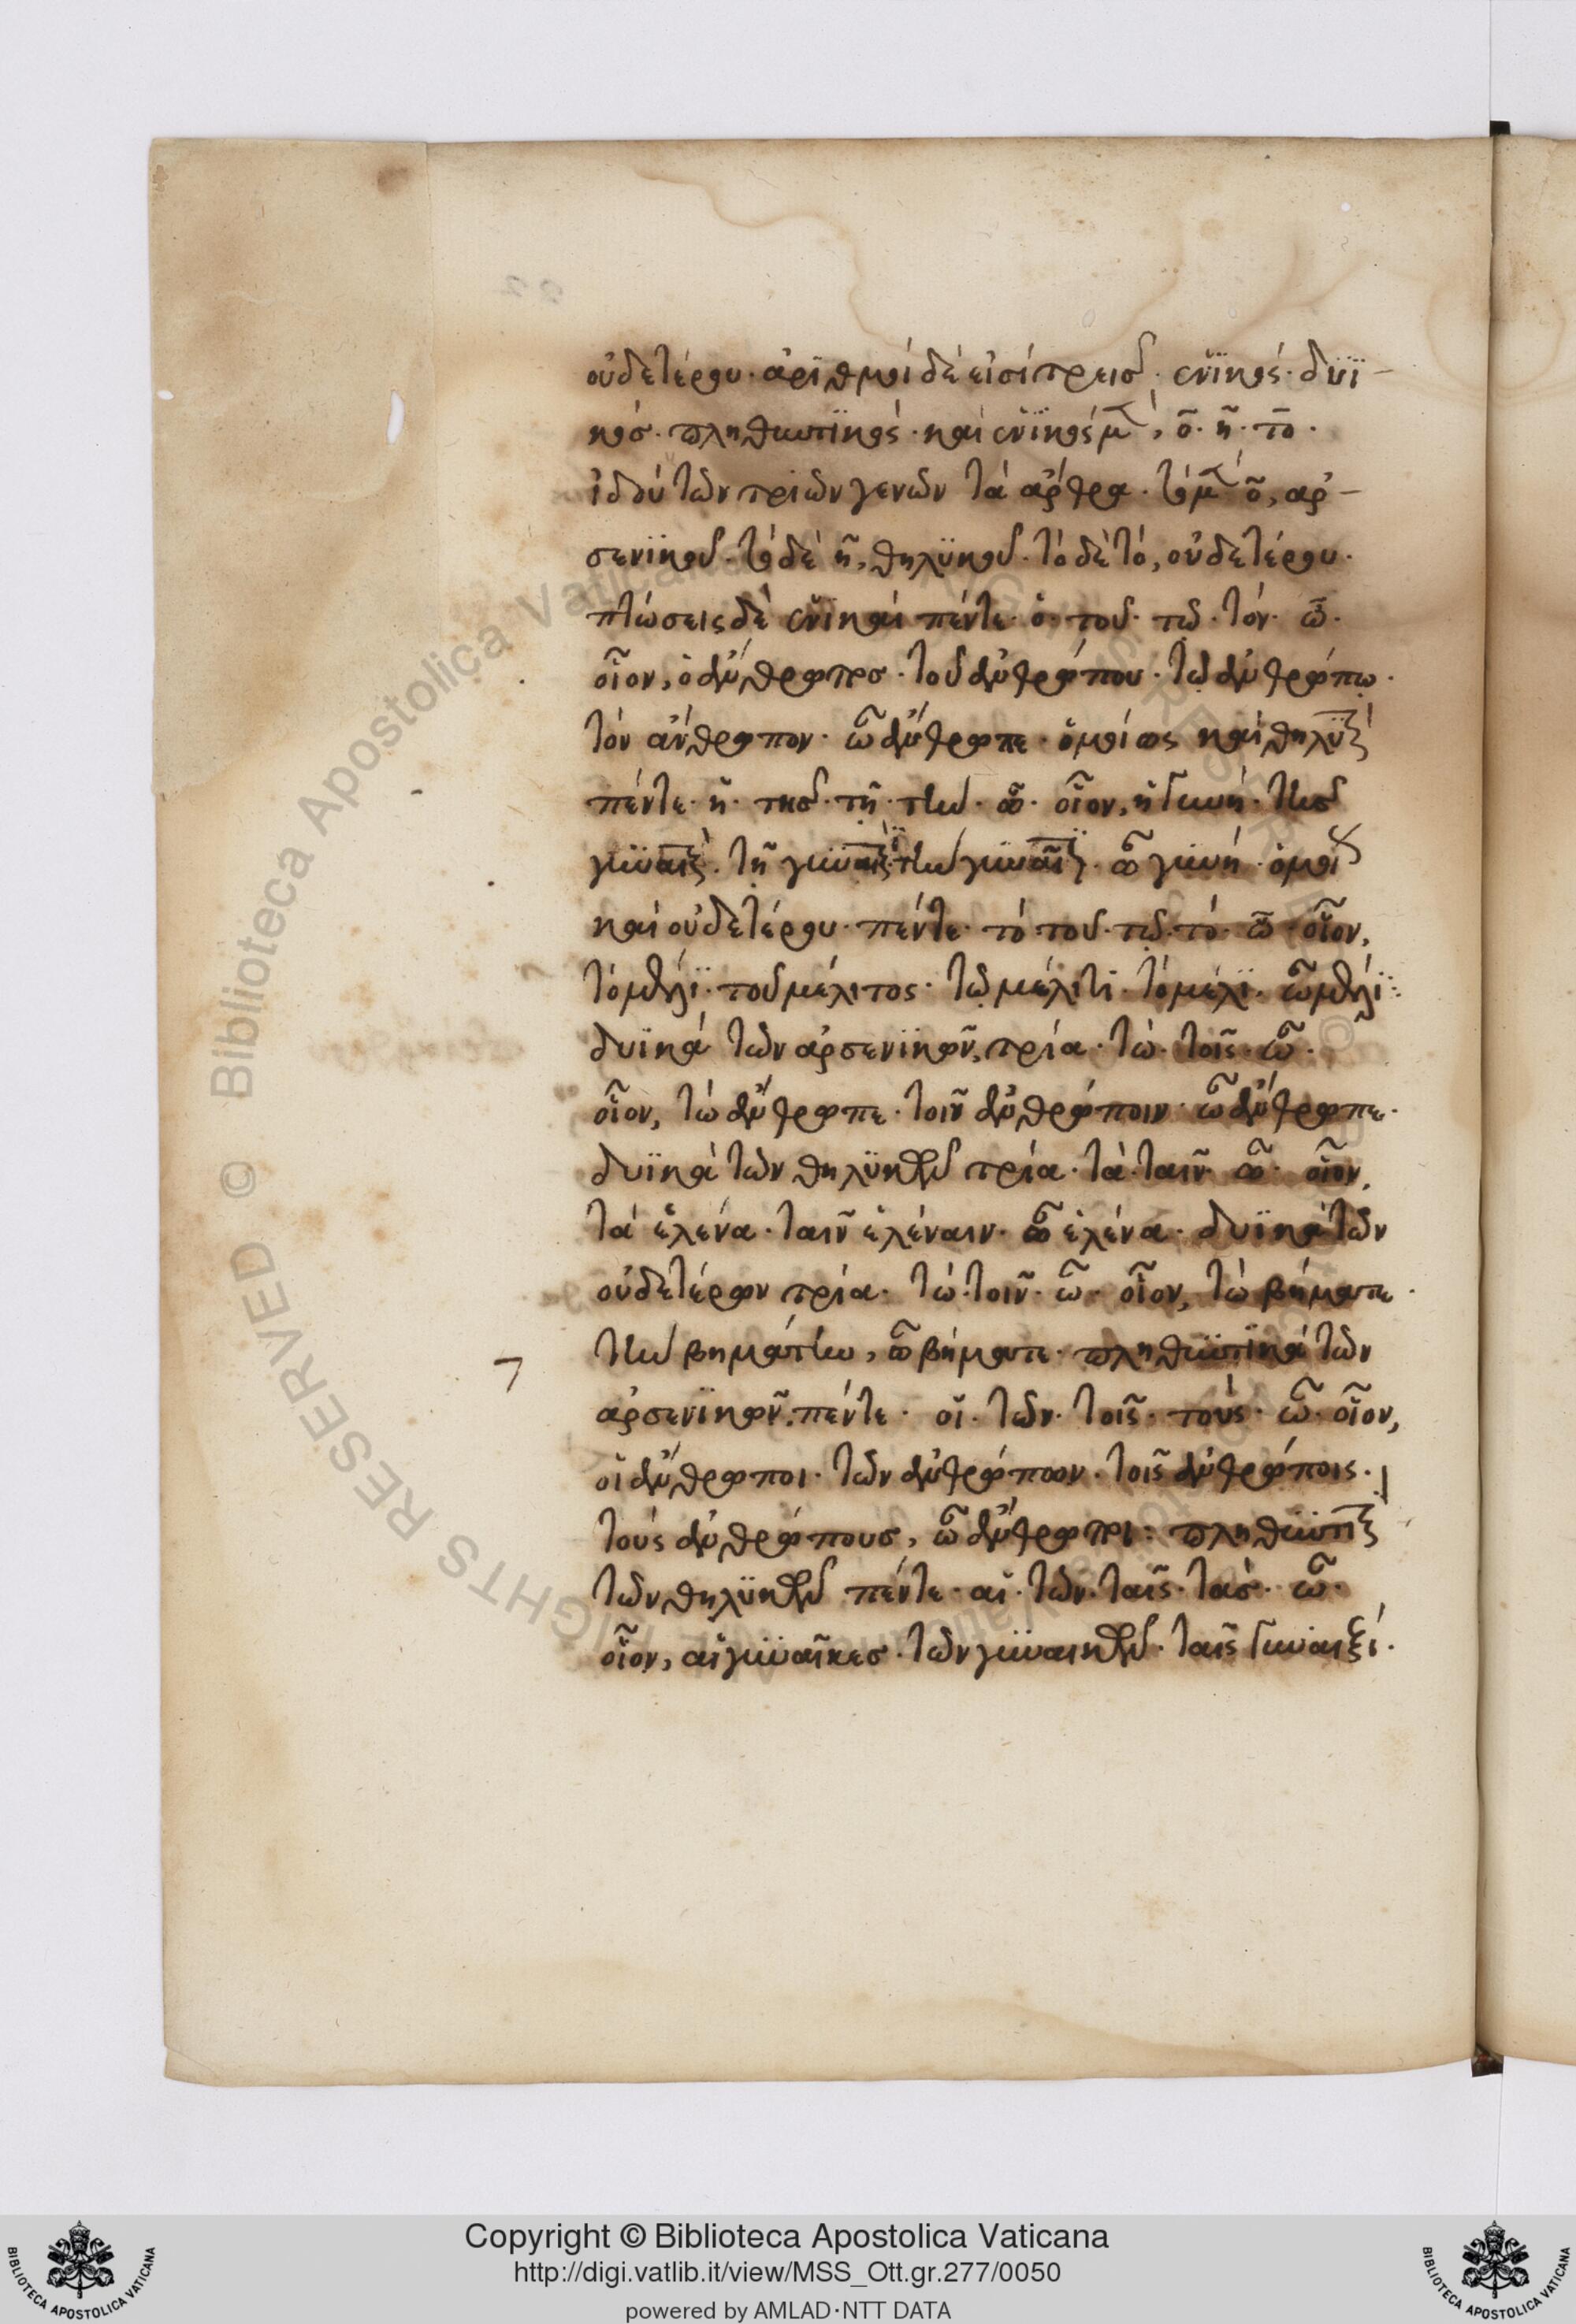 οὐδετέρου· ἀρϊθμοί δέ εἰσί τρεῖσ· ἑνϊκός· δυϊ-
κόσ· πληθυντϊκός· καί ἑνϊκός μ(ὲν), ὁ· ἡ· τὸ·
ἰδού τῶν τριῶν γενῶν τά ἄρθρα· τό μ(ὲν) ὁ, ἀρ-
σενϊκοῦ· τό δέ ἡ, θηλϋκοῦ· τό δέ τό, οὐδετέρου·
πτώσεις δέ ἑνϊκαί πέντε· ὁ· τοῦ· τῷ· τόν· ὦ·
οἷον, ὁ ἄνθρωποσ· τοῦ ἀνθρώπου· τῷ ἀνθρώπῳ·
τόν ἄνθρωπον· ὦ ἄνθρωπε· ὁμοίως καί θηλϋκ(αί)
πέντε· ἡ· τῆσ· τῇ· τήν· ὦ· οἷον, ἡ γυνή· τῆσ
γυναικ(ός)· τῇ γυναικί· τήν γυναῖκ(α)· ὦ γύνη· ὁμοί(ως)
καί οὐδετέρου· πέντε· τό· τοῦ· τῷ· τό· ὦ· οἷον,
τό μέλϊ· τοῦ μέλιτος· τῷ μέλιτϊ· τό μέλϊ· ὦ μέλϊ:
δυϊκά τῶν ἀρσενϊκῶν, τρία· τώ· τοῖς· ὦ·
οἷον, τώ ἄνθρωπε· τοῖν ἀνθρώποιν· ὦ ἄνθρωπε·
δυϊκά τῶν θηλϋκῶν τρία· τά· ταῖν· ὦ· οἷον,
τά ἑλένα· ταῖν ἑλέναιν· ὦ ἑλένα· δυϊκά τῶν
οὐδετέρων τρία· τώ· τοῖν· ὦ· οἷον, τώ βήματε·
τήν βημάτην, ὦ βήματε· πληθυντϊκά τῶν
ἀρσενϊκῶν, πέντε· οἱ· τῶν· τοῖς· τούς· ὦ· οἷον,
οἱ ἄνθρωποι· τῶν ἀνθρώπων· τοῖς ἀνθρώποις·
τούς ἀνθρώπουσ, ὦ ἄνθρωποι: πληθυντϊκ(ά)
τῶν θηλϋκῶν πέντε· αἱ· τῶν· ταῖς· τάσ· ὦ·
οἷον, αἱ γυναῖκεσ· τῶν γυναικῶν· ταῖς γυναιξί·
Copyright © Biblioteca Apostolica Vaticana
http://digi.vatlib.it/view/MSS_Ott.gr.277/0050
powered by AMLAD·NTT DATA